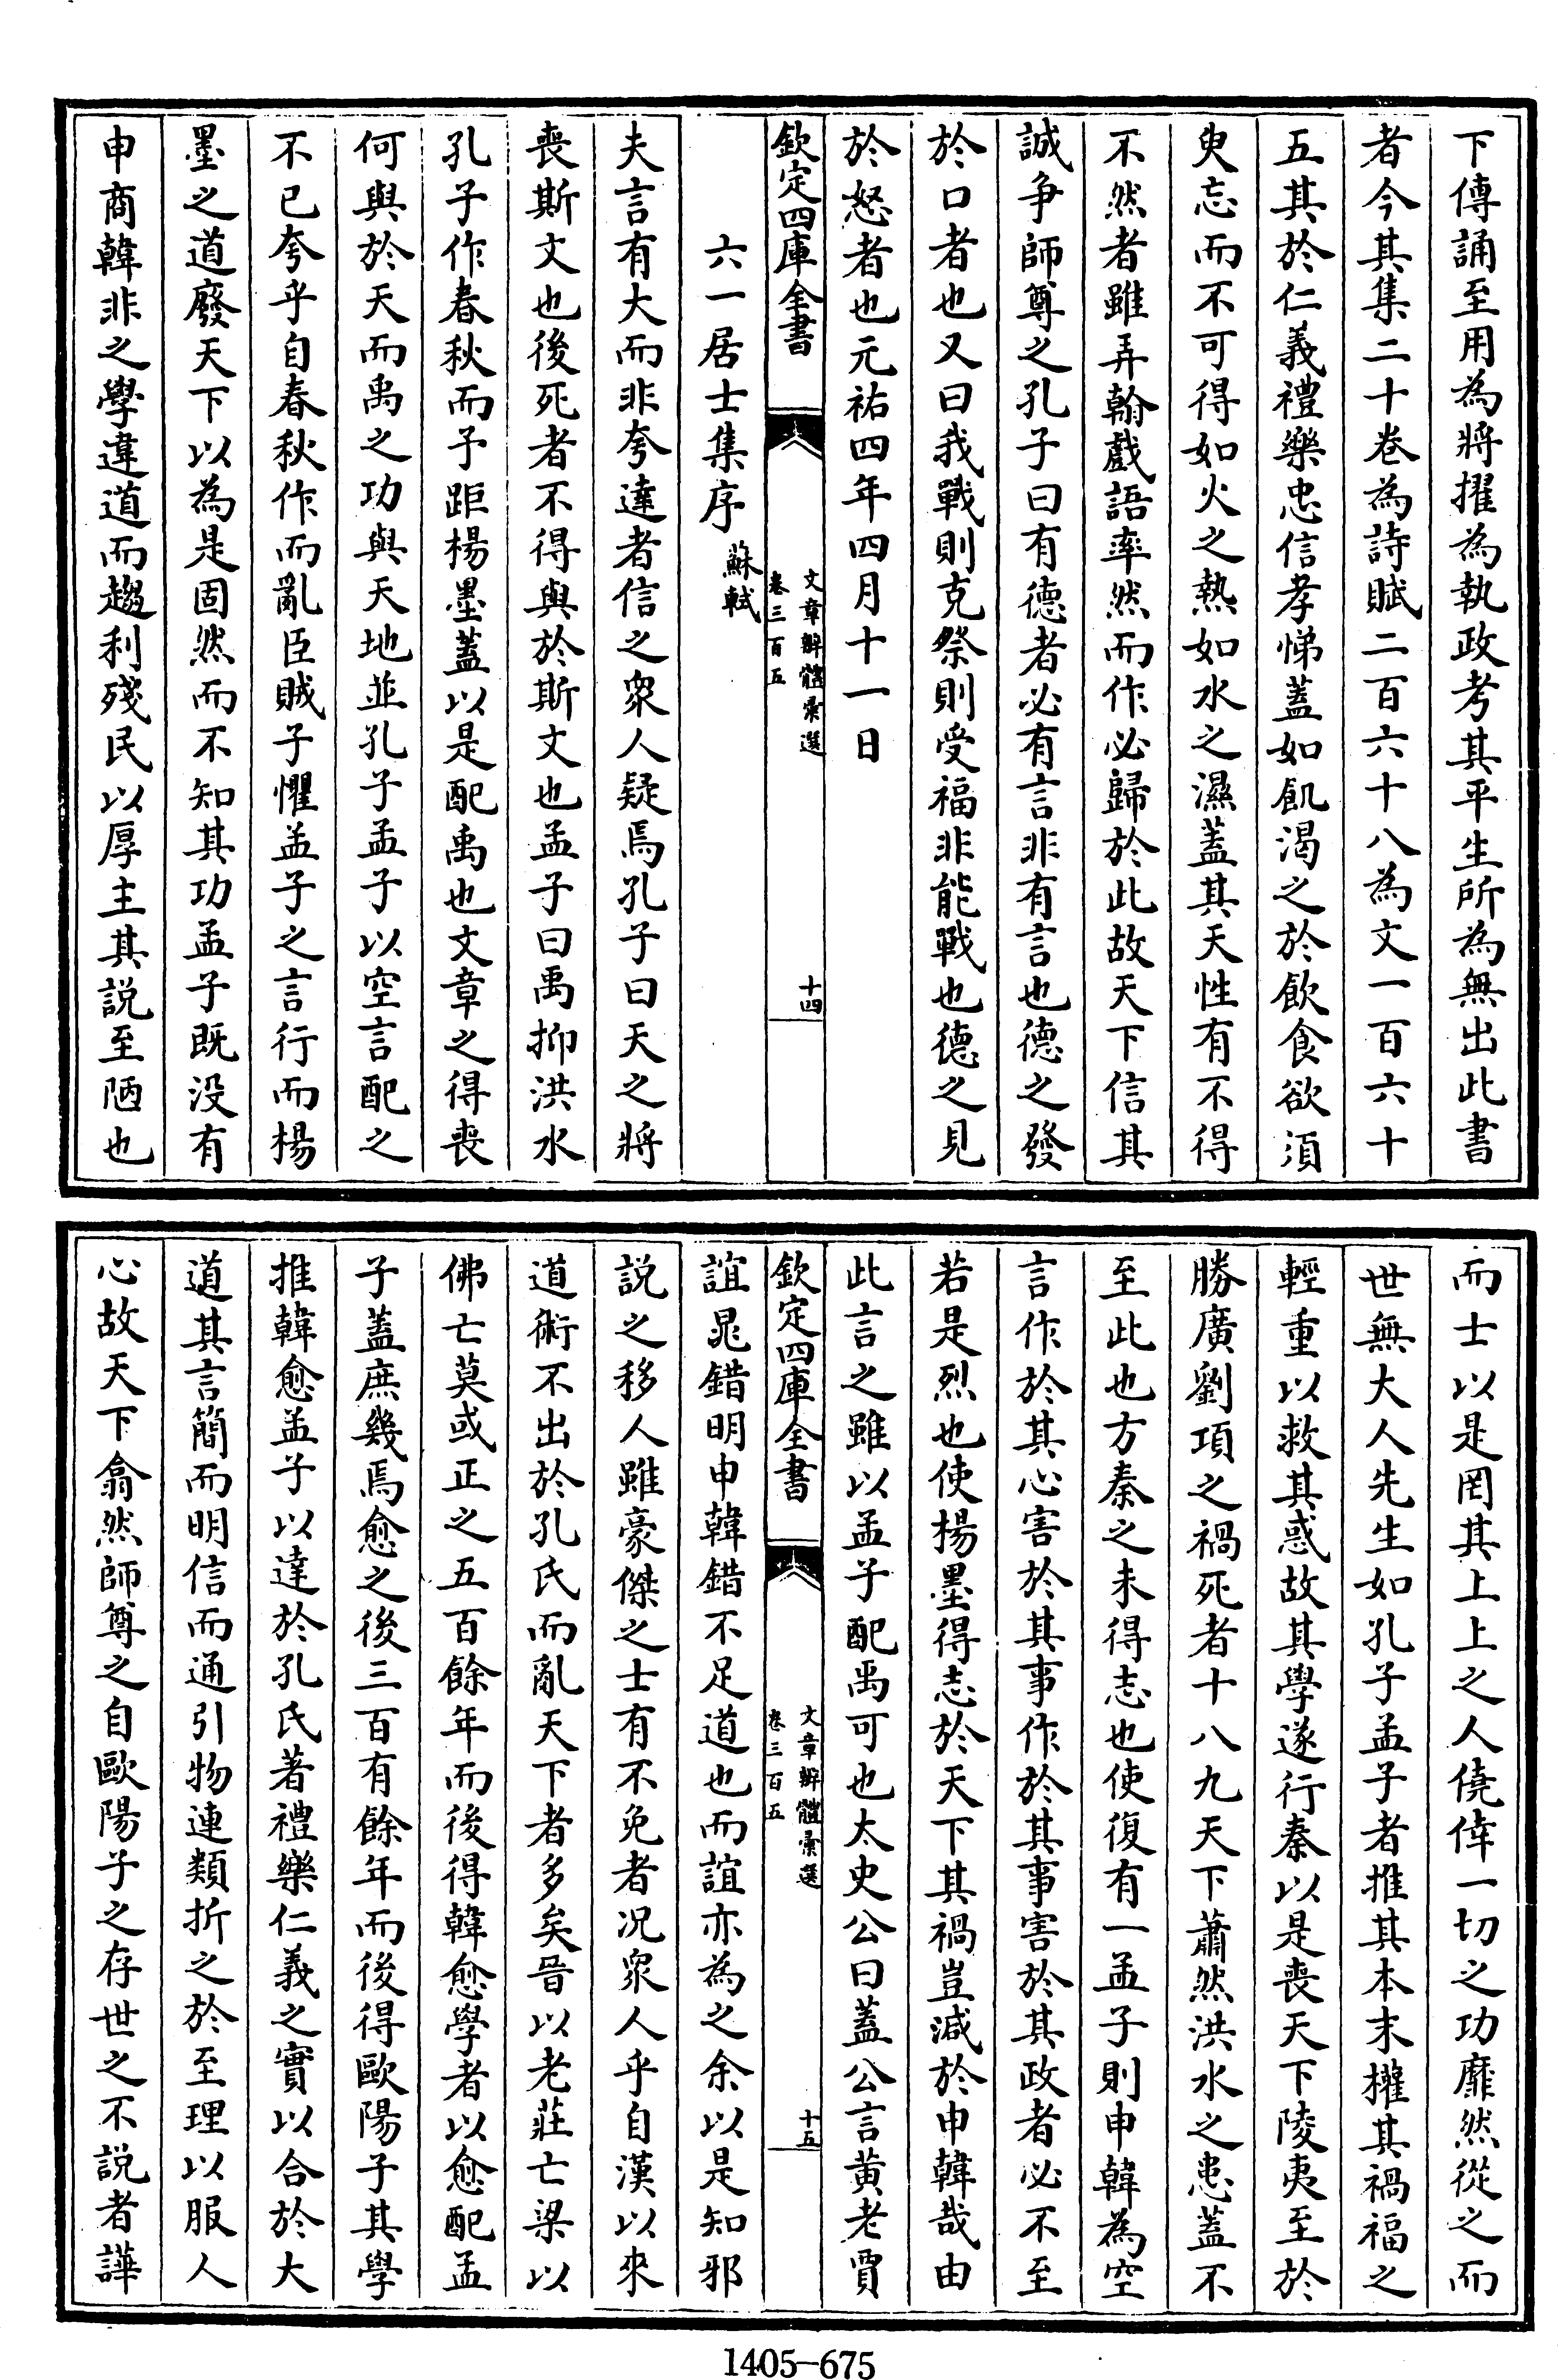 下傳誦至用為將擢為執政考其平生所為無出此書
者今其集二十卷為詩賦二百六十八為文一百六十
五其於仁義禮樂忠信孝悌蓋如飢渴之於飲食欲須
臾忘而不可得如火之熱如水之濕蓋其天性有不得
不然者雖弄翰戲語率然而作必歸於此故天下信其
誠争師尊之孔子曰有德者必有言非有言也德之發
於口者也又曰我戰則克祭則受福非能戰也德之見
於怒者也元祐四年四月十一日
欽定四庫全書
文章辨體彙選
卷三百五
十四
六一居士集序 蘇軾
夫言有大而非夸達者信之衆人疑焉孔子曰天之將
喪斯文也後死者不得與於斯文也孟子曰禹抑洪水
孔子作春秋而予距楊墨蓋以是配禹也文章之得喪
何與於天而禹之功與天地並孔子孟子以空言配之
不已夸乎自春秋作而亂臣賊子懼孟子之言行而楊
墨之道廢天下以為是固然而不知其功孟子既沒有
申商韓非之學違道而趨利殘民以厚主其説至陋也
而士以是罔其上上之人僥倖一切之功靡然從之而
世無大人先生如孔子孟子者推其本末權其禍福之
輕重以救其惑故其學遂行秦以是喪天下陵夷至於
勝廣劉項之禍死者十八九天下蕭然洪水之患蓋不
至此也方秦之未得志也使復有一孟子則申韓為空
言作於其心害於其事作於其事害於其政者必不至
若是烈也使楊墨得志於天下其禍豈減於申韓哉由
此言之雖以孟子配禹可也太史公曰蓋公言黄老賈
欽定四庫全書
文章辨體彙選
卷三百五
十五
誼鼂錯明申韓錯不足道也而誼亦為之余以是知邪
説之移人雖豪傑之士有不免者况衆人乎自漢以來
道術不出於孔氏而亂天下者多矣晉以老莊亡梁以
佛亡莫或正之五百餘年而後得韓愈學者以愈配孟
子蓋庶幾焉愈之後三百有餘年而後得歐陽子其學
推韓愈孟子以達於孔氏著禮樂仁義之實以合於大
道其言簡而明信而通引物連類折之於至理以服人
心故天下翕然師尊之自歐陽子之存世之不説者譁
1405-675